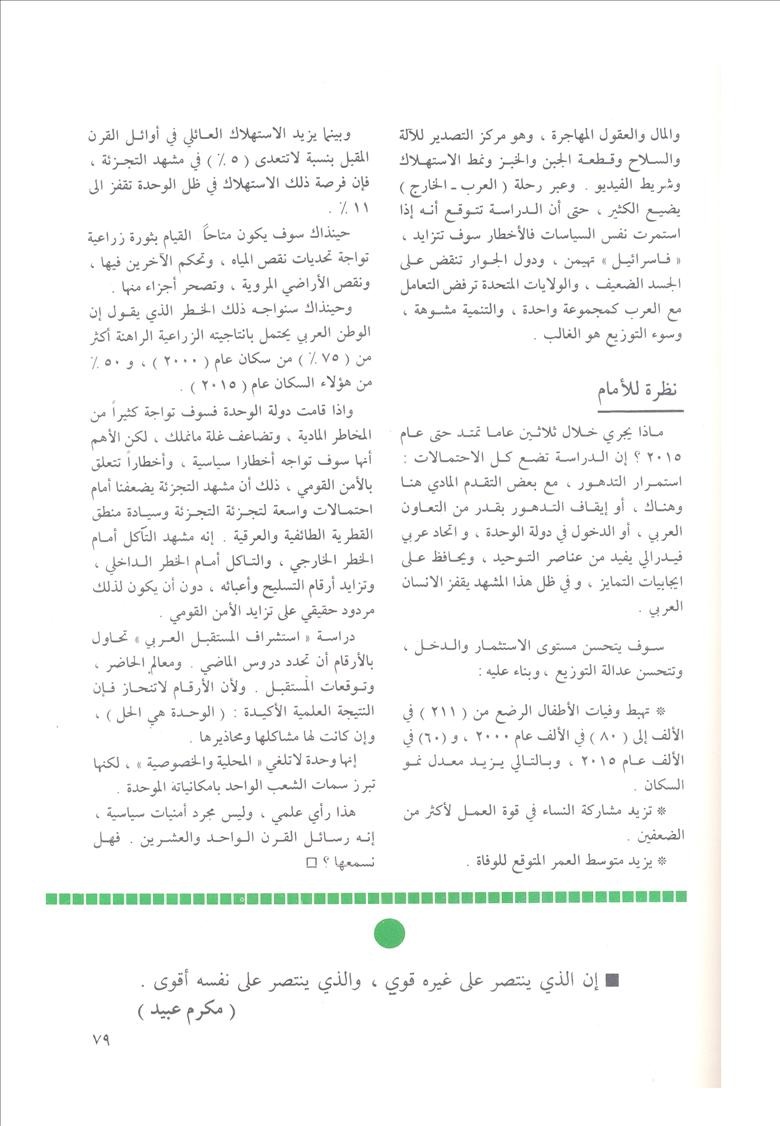 والمال والعقول المهاجرة ، وهو مركز التصدير للآلة
والسلاح وقطعة الجبن والخبز ونمط الاستهلاك
وشريط الفيديو . وعبر رحلة ( العرب ـ الخارج )
يضيع الكثير ، حتى أن الدراسة تتوقع أنه إذا
استمرت نفس السياسات فالأخطار سوف تتزايد ،
« فاسرائيل » تهيمن ، ودول الجوار تنقض على
الجسد الضعيف ، والولايات المتحدة ترفض التعامل
مع العرب كمجموعة واحدة ، والتنمية مشوهة ،
وسوء التوزيع هو الغالب .
نظرة للأمام
ماذا يجري خلال ثلاثين عاما تمتد حتى عام
٢٠١٥ ؟ إن الدراسة تضع كل الاحتمالات :
استمرار التدهور ، مع بعض التقدم المادي هنا
وهناك ، أو إيقاف التدهور بقدر من التعاون
العربي ، أو الدخول في دولة الوحدة ، و اتحاد عربي
فيدرالي يفيد من عناصر التوحيد ، ويحافظ على
ايجابيات التمايز ، وفي ظل هذا المشهد يقفز الانسان
العربي .
سوف يتحسن مستوى الاستثمار والدخل ،
وتتحسن عدالة التوزيع ، وبناء عليه :
* تهبط وفيات الأطفال الرضع من ( ٢١١ ) في
الألف إلى ( ٨٠ ) في الألف عام ٢٠٠٠ ، و (٦٠) في
الألف عام ٢٠١٥ ، وبالتالي يزيد معدل نمو
السكان .
* تزيد مشاركة النساء في قوة العمل لأكثر من
الضعفين .
* يزيد متوسط العمر المتوقع للوفاة .
وبينما يزيد الاستهلاك العائلي في أوائل القرن
المقبل بنسبة لاتتعدى ( ٥ ٪ ) في مشهد التجزئة ،
فإن فرصة ذلك الاستهلاك في ظل الوحدة تقفز الى
١١ ٪ .
حينذاك سوف يكون متاحاً القيام بثورة زراعية
تواجة تحديات نقص المياه ، وتحكم الآخرين فيها ،
ونقص الأراضي المروية ، وتصحر أجزاء منها .
وحينذاك سنواجه ذلك الخطر الذي يقول إن
الوطن العربي يحتمل بانتاجيته الزراعية الراهنة أكثر
من ( ٧٥ ٪ ) من سكان عام ( ٢٠٠٠ ) ، و ٥٠ ٪
من هؤلاء السكان عام ( ٢٠١٥ ) .
واذا قامت دولة الوحدة فسوف تواجة كثيراً من
المخاطر المادية ، وتضاعف غلة مانملك ، لكن الأهم
أنها سوف تواجه أخطارا سياسية ، وأخطاراً تتعلق
بالأمن القومي ، ذلك أن مشهد التجزئة يضعفنا أمام
احتمالات واسعة لتجزئة التجزئة وسيادة منطق
القطرية الطائفية والعرقية . إنه مشهد التآكل أمام
الخطر الخارجي ، والتاكل أمام الخطر الداخلي ،
وتزايد أرقام التسليح وأعبائه ، دون أن يكون لذلك
مردود حقيقي على تزايد الأمن القومي .
دراسة « استشراف المستقبل العربي » تحاول
بالأرقام أن تحدد دروس الماضي . ومعالم الحاضر ،
وتوقعات المستقبل . ولأن الأرقام لاتنحاز فإن
النتيجة العلمية الأكيدة : ( الوحدة هي الحل ) ،
وإن كانت لها مشاكلها ومحاذيرها .
إنها وحدة لاتلغي « المحلية والخصوصية » ، لكنها
تبرز سمات الشعب الواحد بامكانياته الموحدة .
هذا رأي علمي ، وليس مجرد أمنيات سياسية ،
إنه رسائل القرن الواحد والعشرين . فهل
نسمعها ؟ □
■ إن الذي ينتصر على غيره قوي ، والذي ينتصر على نفسه أقوى .
( مكرم عبيد )
٧٩